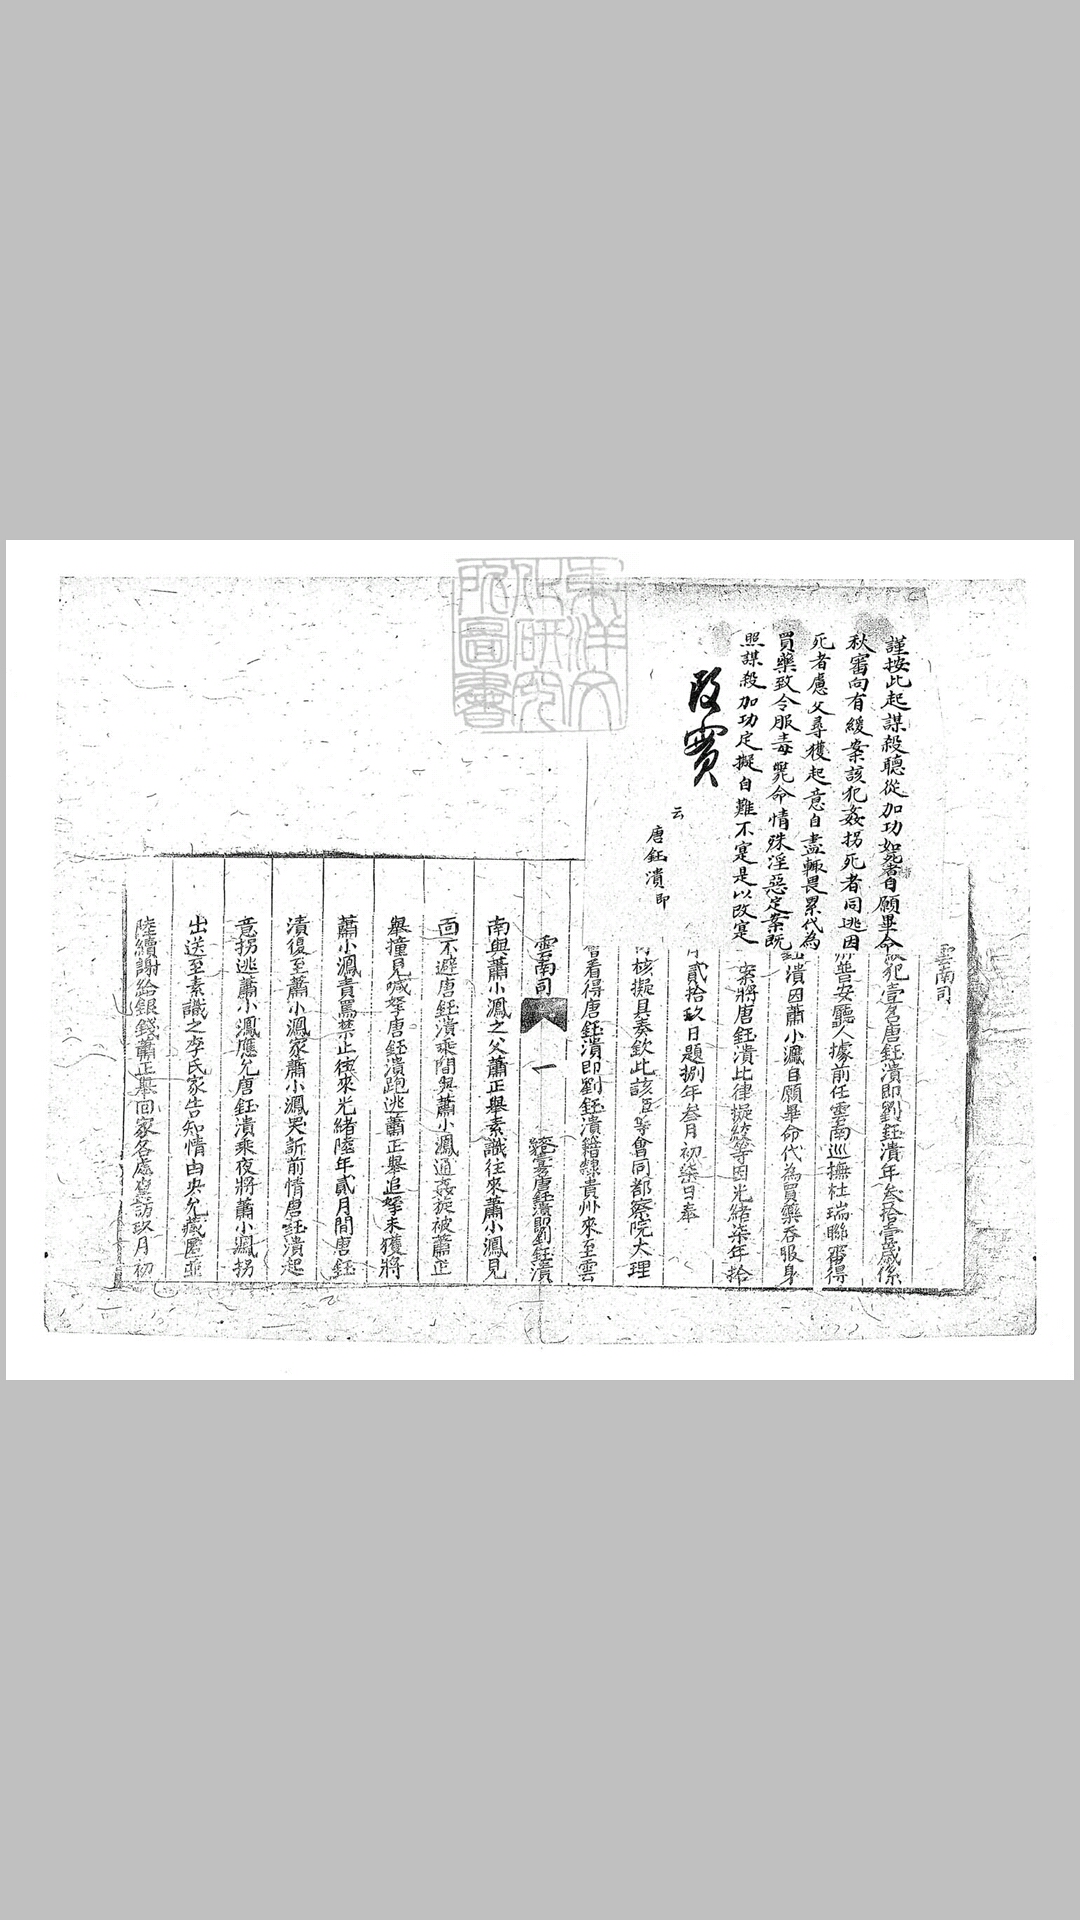 謹按此起謀殺聽從加功如死者自願畢命
秋審向有緩案該犯姦拐死者同逃因
死者慮父尋獲起意自盡輒畏累代為
買藥致令服毒斃命情殊淫惡定案既
照謀殺加功定擬自難不寔是以改寔
改實
云
唐鈺漬即
雲南司
犯壹名唐鈺漬即劉鈺漬年叁拾壹歲係
普安廳人據前任雲南巡撫杜瑞聯審得
鈺漬因蕭小鳳自願畢命代為買藥吞服身
案將唐鈺漬比律擬絞等因光緒柒年拾
貳拾玖日題捌年叁月初柒日奉
核擬具奏欽此該臣等會同都察院大理
看得唐鈺漬即劉鈺漬籍隸貴州來至雲
雲南司
一
唐鈺漬即劉鈺漬
南與蕭小鳳之父蕭正舉素識往來蕭小鳳見
面不避唐鈺漬乘間與蕭小鳳通姦旋被蕭正
舉撞見喊拏唐鈺漬跑逃蕭正舉追拏未獲將
蕭小鳳責罵禁止往來光緒陸年貳月間唐鈺
漬復至蕭小鳳家蕭小鳳哭訴前情唐鈺漬起
意拐逃蕭小鳳應允唐鈺漬乘夜將蕭小鳳拐
出送至素識之李氏家告知情由央允藏匿並
陸續謝給銀錢蕭正舉回家各處查訪玖月初
東洋文化研究所圖書